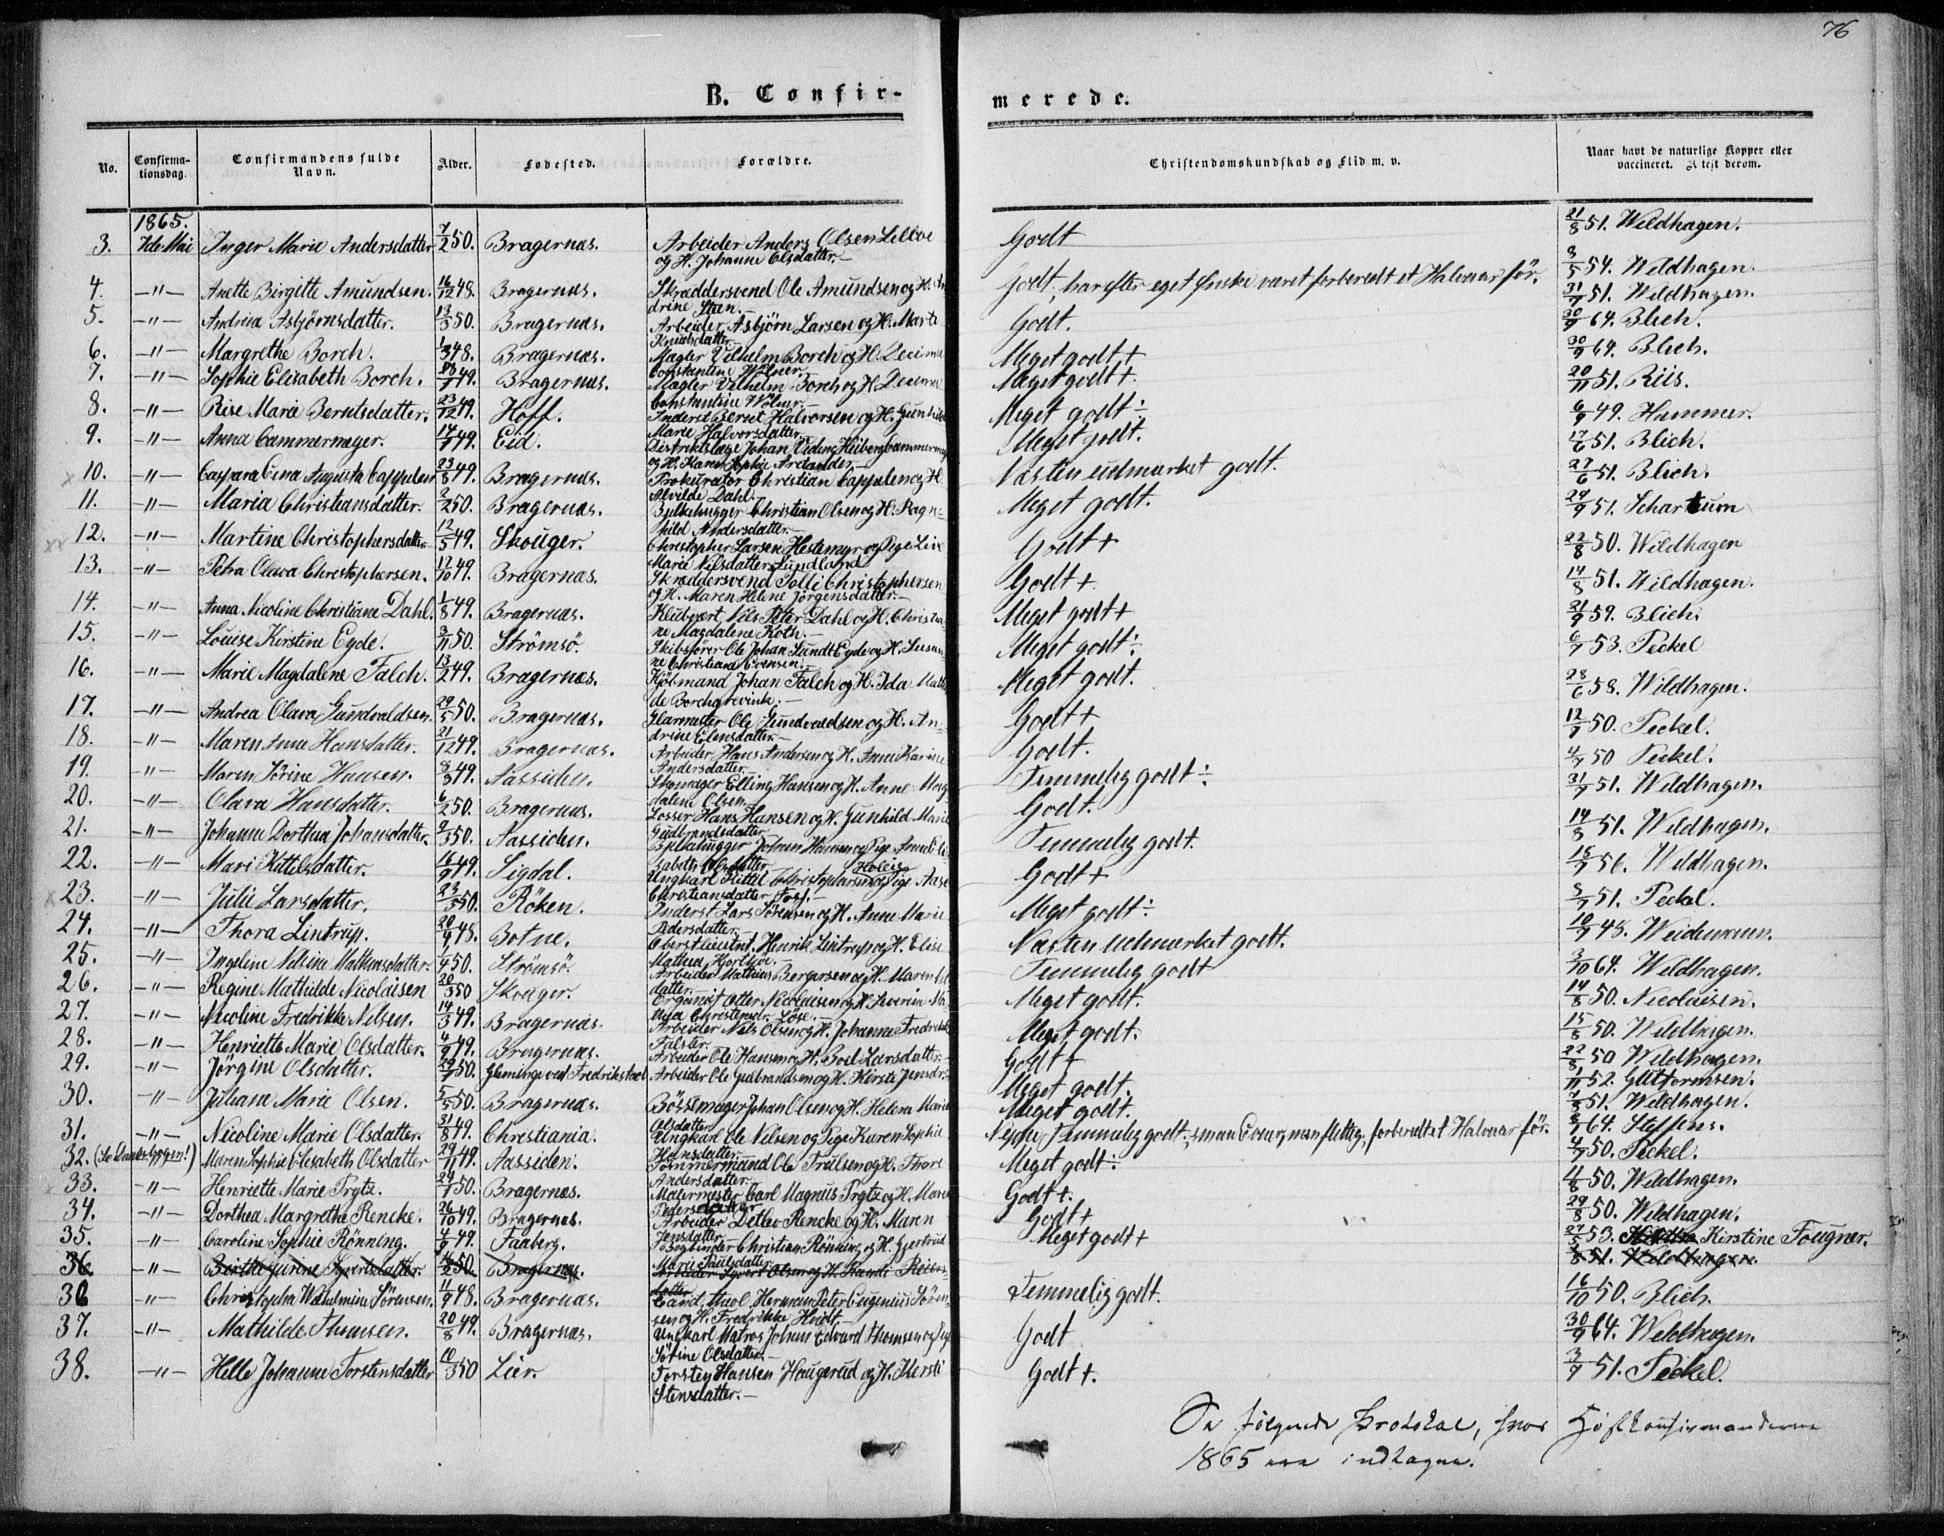 76
B. Confirmerede.
No. Confirmationsdag. Confirmandens fulde Navn. Alder. Fødested. Forældre. Christendomskundskab og Flid m. v. Naar havt de naturlige Kopper eller vaccineret. Attest derom.
1865.
3. 7de Mai Inger Marie Andersdatter 7/2 50. Bragernæs. Arbeider Anders Olsen Lilloe og H. Johanne Olsdatter.— Godt 21/8 51. Wildhagen.
4. —"— Anette Birgitte Amundsen. 16/12 48. Bragernæs. Skræddersvend Ole Amundsen og H. Andrine Steen.— Godt, har efter eget Ønske været forberedt et Halvaar før. 3/5 54. Wildhagen.
5. —"— Andrea Asbjørnsdatter. 13/3 50. Bragernæs. Arbeider Asbjörn Larsen og H. Marte Knudsdatter.— Godt. 31/7 51. Wildhagen.
6. —"— Margrethe Borch. 1/3 48. Bragernæs. Mægler Vilhelm Borch og H. Decima Constantine Wölner. Meget godt + 30/9 64. Blich.
7. —"— Sophie Elisabeth Borch. 49. Bragernæs. Mægler Vilhelm Borch og H. Decima Constantine Wölner.— Meget godt + 30/9 64. Blich.
8. —"— Rise Marie Berntsdatter. 23/12 49. Hoff. Inderst Bernt Halvorsen og H. Gunhild Marie Halvorsdatter. Meget godt ÷ 20/11 51. Riis.
9. —"— Anna Cammermeyer. 14/7 49. Eid. Distriktslæge Johan Heiberg Cammermeyer og H. Karen Sophie — Meget godt. 6/9 49. Hammer.
10. —"— Caspara Cima Augusta Cappelen 23/8 49. Bragernæs. Prokurator Christian Cappelen og H. Alvilde Dahl. Næsten udmærket godt. 17/6 51. Blich.
11. —"— Maria Christiansdatter. 2/2 50. Bragernæs. Bulkehugger Christian Olsen og H. Ragnhild Andersdatter.— Meget godt. 27/6 51. Blich.
12. —"— Martine Christophersdatter 12/5 49. Skouger. Christopher Larsen Hestemyr og Pige Live Marie Nilsdatter Lundland Godt + 29/9 51. Schartum
13. —"— Petra Olava Christophersen. 17/10 49. Bragernæs. Skræddersvend Tolli Christophersen og H. Maren Helene Jörgensdatter.— Godt + 22/8 50. Wildhagen
14. —"— Anna Nicoline Christiane Dahl. 1/8 49. Bragernæs. Klubvert Nils Peter Dahl og H. Christiane Magdalene Koth.— Meget godt + 14/8 51. Wildhagen.
15. —"— Louise Kirstine Eyde. 3/11 50. Strömsö. Skibsfører Ole Johan Lundt Eyde og H. Susanne Christiane Evensen.— Meget godt ÷ 21/9 59. Blich.
16. —"— Marie Magdalene Falch. 13/2 49. Bragernæs. Kjöbmand Johan Falch og H. Ida Mathilde Borchgrevink.— Meget godt. 6/7 53. Peckel
17. —"— Andrea Olava Gundvaldsen. 29/5 50. Bragernæs. Glarmester Ole Gundvaldsen og H. Andrine Elensdatter.— Godt + 28/6 58. Wildhagen.
18. —"— Maren Anne Hansdatter. 21/12 49. Bragernæs. Arbeider Hans Andersen og H. Anne Karine Andersdatter.— Godt. 12/7 50. Peckel.
19. —"— Maren Sørine Hansen. 8/3 49. Aassiden. Skomager Elling Hansen og H. Anne Magdalene Olsen.— Temmelig godt ÷ 4/7 50 Peckel.
20. —"— Olava Hansdatter. 6/2 50. Bragernæs. Losser Hans Hansen og H. Gunhild Marie Gudbrandsdatter Godt. 31/7 51. Wildhagen.
21. —"— Johanne Dorthea Johansdatter. 9/3 50. Aassiden. Bulkehugger Johan Hansen og Pige Anne Elisabeth Olsdatter Temmelig godt. 14/8 51. Wildhagen.
22. —"— Mari Kittelsdatter. 16/9 49. Sigdal. Ungkarl Kittil Christophersen og Pige Aase Christiansdatter Godt + 18/7 56. Wildhagen.
23. —"— Julie Larsdatter. 23/5 50. Röken. Inderst Lars Sörensen og H. Anne Marie Pedersdatter.— Meget godt ÷ 3/7 51. Peckel.
24. —"— Thora Lintrup. 20/9 48. Botne. Oberstlieutnt. Henrik Lintrup og H. Elise Mathea Næsten udmærket godt. 10/7 48. Weidemann.
25. —"— Ingeline Nilsine Mathiasdatter. 50. Strömsö. Arbeider Mathias Bergersen og H. Maren datter. Temmelig godt 3/10 64. Wildhagen.
26. —"— Regine Mathilde Nicolaisen 20/3 50 Skouger. Organist Otter Nicolaisen og H. Severin Meget godt. 14/8 50. Nicolaisen.
27. —"— Nicoline Fredrikke Nilsen. 14/3 49. Bragernæs. Arbeider Nils Olsen og H. Johanne Fredrikke Falster. Meget godt. 15/8 50. Wildhagen.
28. —"— Henriette Marie Olsdatter. 4/9 49. Bragernæs. Arbeider Ole Hansen og H. Boel Larsdatter.— Godt + 22/8 50 Wildhagen.
29. —"— Jörgine Olsdatter. 29/7 50. Glemminge ved Fredrikstad Arbeider Ole Gulbrandsen og H. Kirsti Jensdr. Meget godt. 1/11 52. Guttormsen.
30. —"— Juliane Marie Olsen. 5/5 50. Bragernæs. Bössemager Johan Olsen og H. Helena Marie Olsdatter Meget godt. 7/8 51. Wildhagen.
31. —"— Nicoline Marie Olsdatter. 31/8 49. Christiania. Ungkarl Ole Nilsen og Pige Karen Sophie Hansdatter.— Neppe Temmelig godt; smaa Evner, men flittig, forberedt et Halvaar før. 64. Steffens.
32. (Se Daabsbogen!) Maren Sophie Elisabeth Olsdatter 29/11 49. Aassiden. Tømmermand Ole Trulsen og H. Thore Andersdatter.— Meget godt ÷ 4/7 50. Peckel.
33. —"— Henriette Marie Prytz. 24/7 50. Bragernæs. Malermester Carl Magnus Prytz og H. Maren Pedersdatter Godt +. 11/8 50. Wildhagen.
34. —"— Dorthea Margrethe Rencke. 26/10 49. Bragernæs. Arbeider Detlev Rencke og H. Maren Jensdatter.— Godt + 29/8 50. Wildhagen.
35. —"— Caroline Sophie Rönning. 4/9 49. Faaberg. Bogbinder Christian Rönning og H. Gjertrud Marie Paulsdatter Meget godt + 27/5 53. Kirstine Fougner.
36 —"— Birthe Jurine Syvertsdatter. 50. Bragernæs. Arbeider Syvert Olsen og H. Randi Reiersdatter 51. Wildhagen.
36 —"— Christopha Wilhelmine Sörensen. 11/9 48. Bragernæs. Cand. theol. Herman Peter Eugenius Sörensen og H. Fredrikke Hvidt. Temmelig godt. 16/10 50. Blich.
37. —"— Mathilde Thomsen. 20/8 49. Bragernæs. Ungkarl Matros Johan Edvard Thomsen og Pige Sörine Olsdatter.— Godt 30/9 64. Wildhagen.
38. —"— Helle Johanne Torstensdatter 10/3 50 Lier. Torsten Hansen Haugerud og H. Kirsti Stensdatter.— Godt +. 3/7 51. Peckel.
Se følgende Protokol, hvor Høstkonfirmanderne
1865 ere indtagne.